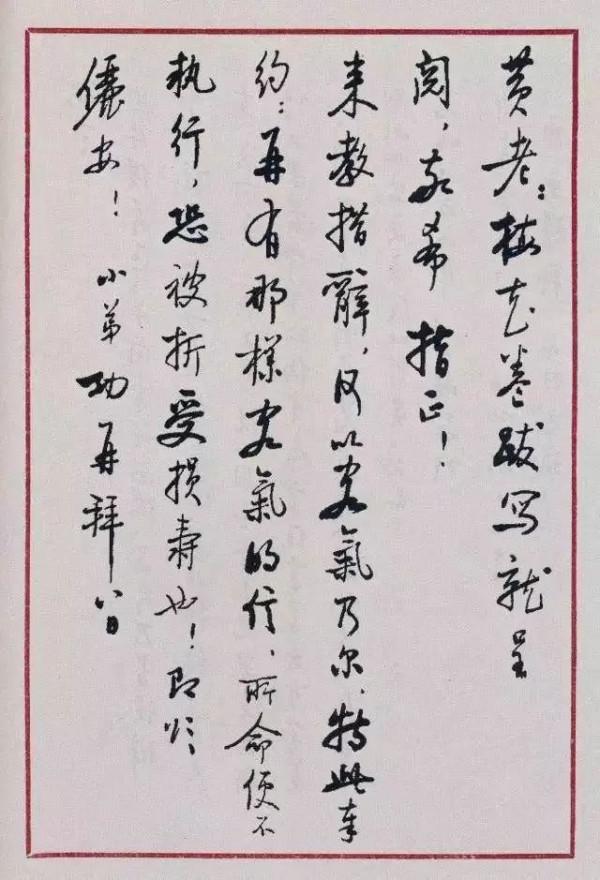 黄老：梅花卷跋写就呈
阅，敬希指正！
来教措辞，何以客氣乃尔，特此奉
约：再有那樣客氣的信，所命便不
执行，恐被折受损寿也！即颂
俪安！
小弟功再拜 八日